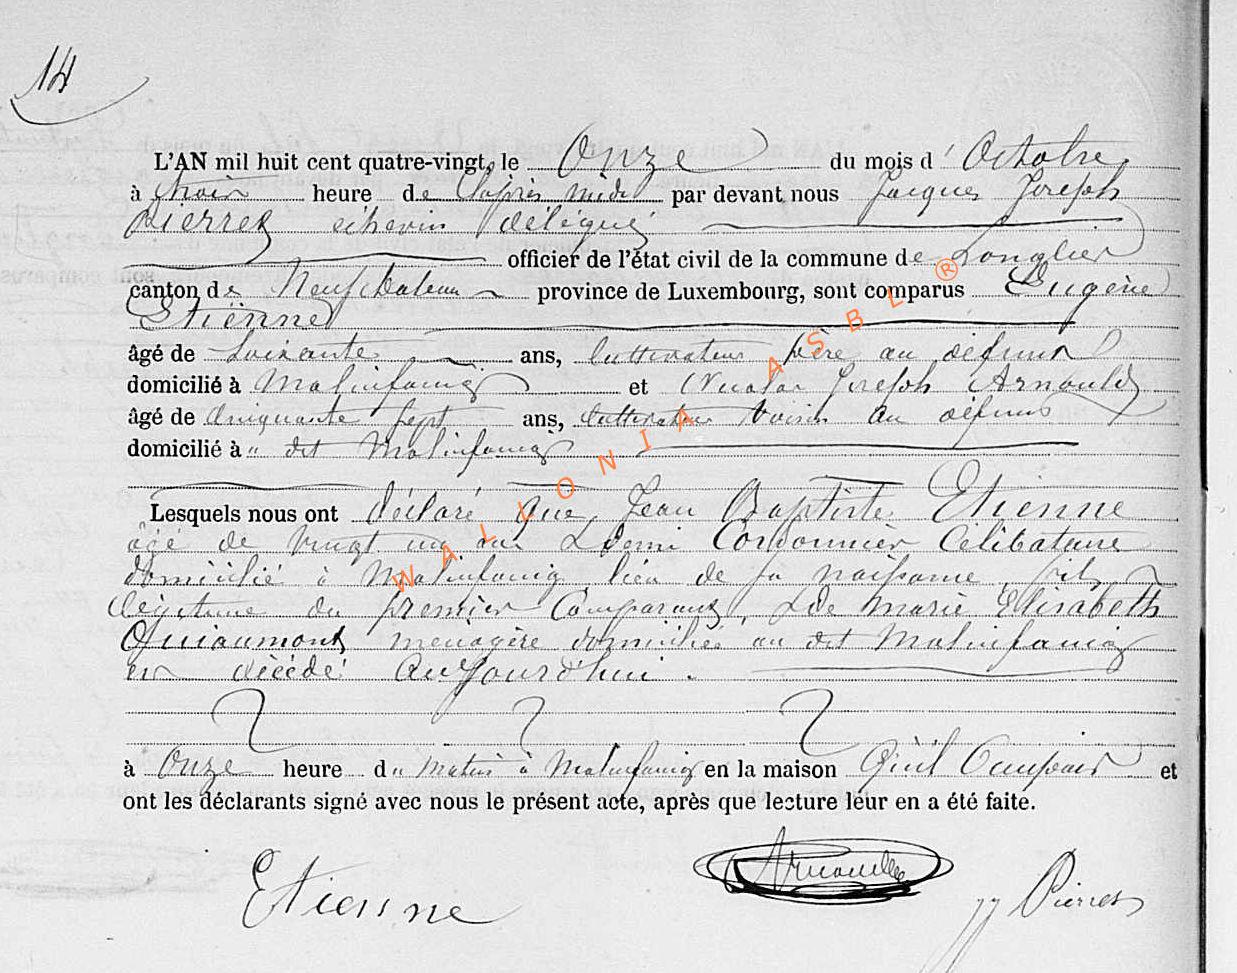 14
L'AN mil huit cent quatre-vingt, le Onze du mois d'Octobre
à trois heure de l'après midi par devant nous Jacques Joseph
Pierret échevin délégué
officier de l'état civil de la commune de Longlier
canton de Neufchateau province de Luxembourg, sont comparus Eugène
Etienne
âgé de Soixante ans, Cultivateur père au défunt
domicilié à Malinfaing et Nicolas Joseph Arnould
âgé de Cinquante Sept ans, Cultivateur voisin au défunt
domicilié à dit Malinfaing
Lesquels nous ont déclaré que Jean Baptiste Etienne
âgé de vingt un ans & demi Cordonnier Célibataire
domicilié à Malinfaing lieu de sa naissance, fils
légitime du premier Comparant, & de Marie Elisabeth
menagère domiciliée au dit Malinfaing
est décédé aujourd'hui.
à Onze heure du matin à Malinfaing en la maison Qu'il Occupait et
ont les déclarants signé avec nous le présent acte, après que lecture leur en a été faite.
Etienne
Arnould
JJ Pierret
WALLONIA ASBL ®